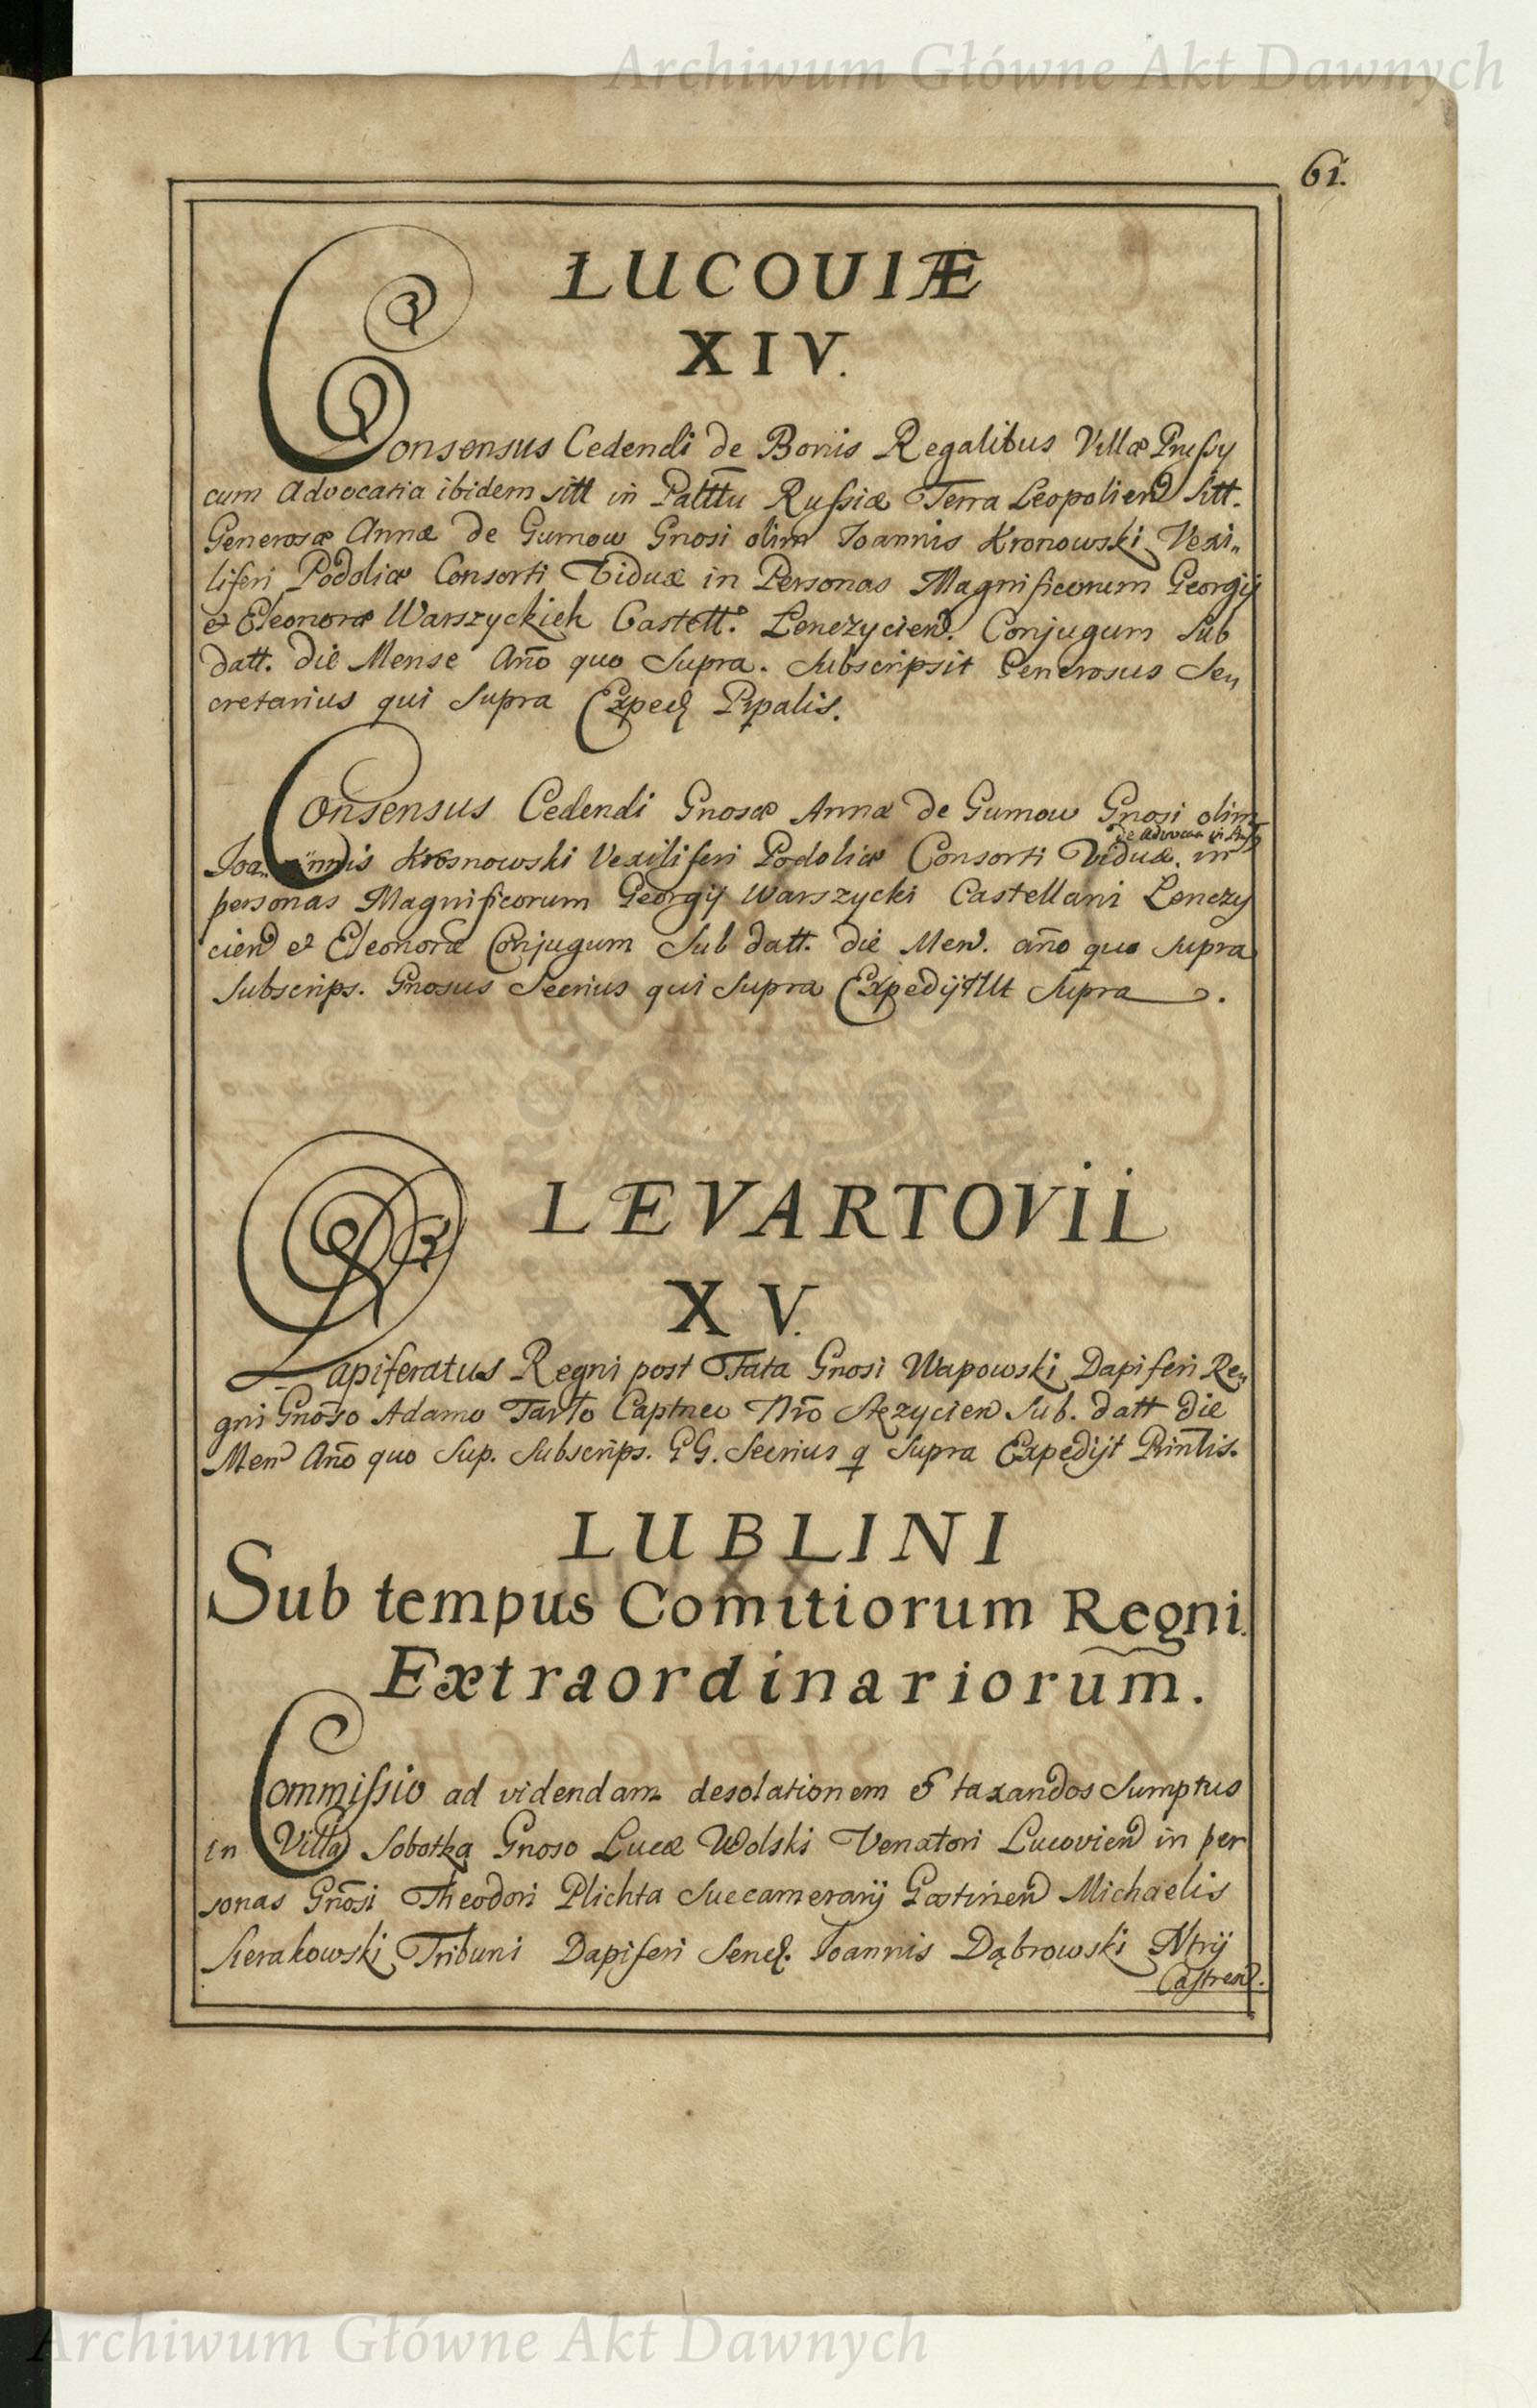 Archiwum Główne Akt Dawnych
61.
LUCOUIÆ
XIV.
Consensus Cedendi de Bonis Regalibus Villæ Prussy
cum Advocatia ibidem sitt in Palttu Russiæ Terra Leopolien sitt.
Generosæ Annæ de Gumow Gnosi olim Joannis Kronowski Vexi„
liferi Podoliæ Consorti Viduæ in Personas Magnificorum Georgij
et Eleonoræ Warszyckich Castell. Lenczycien. Conjugum Sub
datt. die Mense Año quo Supra. Subscripsit Generosus Se„
cretarius qui Supra Exped Prpalis.
Consensus Cedendi Gnosæ Annæ de Gumow Gnosi olim
de in
Joannis Krosnowski Vexiliferi Podoliæ Consorti Viduæ. in
personas Magnificorum Georgij Warszycki Castellani Lenczy
cien et Eleonoræ Conjugum Sub datt. die Men. año quo Supra
Subscrips. Gnosus Secrius qui Supra Expedijt Ut Supra.
LEVARTOVII
XV.
Dapiferatus Regni post Fata Gnosi Wapowski Dapiferi Re„
gni Gnōso Adamo Tarło Captneo Nrō Stęzycien Sub. datt die
Men Año quo Sup. Subscrips. GG. Secrius q Supra Expedijt Prinlis.
LUBLINI
Sub tempus Comitiorum Regni
Extraordinariorum.
Commissio ad videndam desolationem et taxandos Sumptus
in Villa Sobotka Gnoso Lucæ Wolski Venatori Lucovien in per
sonas Gnōsi Theodori Plichta Succamerarij Gostinen Michaelis
Sierakowski Tribuni Dapiferi Joannis Dąbrowski Ntrij
Castren.
Archiwum Główne Akt Dawnych